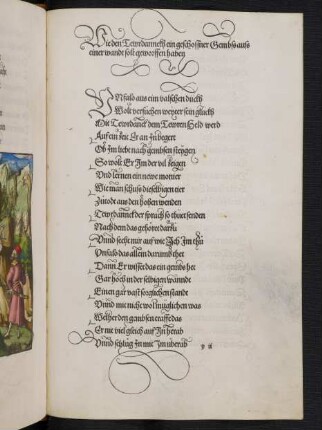 Wie den Tewrdannckh ein geschossner Gembs auss
einer wandt solt geworffen haben
Unfalo aus ein valschen duckh
Wolt versuchen weyter sein glückh
Mit Tewrdannck dem Tewren Held werd
Auf ein zeit Er an In begert
Ob Im liebt nach gembsen steygen
So wolt Er Im der vil zeigen
Und lernen ein newe monier
Wie man schuss dieselbigen tier
Zutodt aus den hohen wenden
Tewrdannck der sprach so thuet senden
Nach dem das gehöre dartzu
Unnd secht nur auf wie Ich Im thu
Unfalo das allein darumb thet
Dann Er wisset das ein gembs het
Gar hoch in der selbigen wanndt
Einen gar vast sorglichen stanndt
Unnd nit wol muglichen was
Welher den gembsen traff das
Er nit viel gleich auf In herab
Unnd schlüg In mit Im